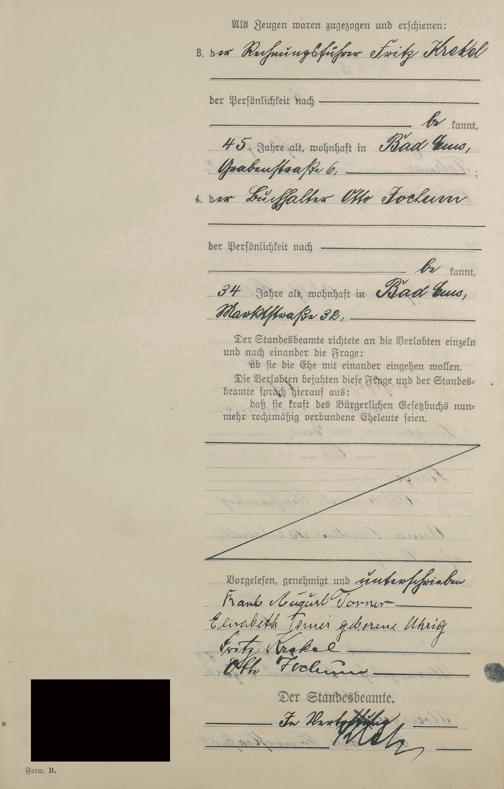 Als Zeugen waren zugezogen und erschienen:
3. der Rechnungsführer Fritz Krekel
der Persönlichkeit nach
be kannt,
45 Jahre alt, wohnhaft in Bad Ems,
Grabenstraße 6,
;
4. der Buchhalter Otto Jochum
der Persönlichkeit nach
be kannt,
34 Jahre alt, wohnhaft in Bad Ems,
Marktstraße 32.
Der Standesbeamte richtete an die Verlobten einzeln
und nach einander die Frage:
ob sie die Ehe mit einander eingehen wollen.
Die Verlobten bejahten diese Frage und der Standes-
beamte sprach hierauf aus:
daß sie kraft des Bürgerlichen Gesetzbuchs nun-
mehr rechtmäßig verbundene Eheleute seien.
Vorgelesen, genehmigt und unterschrieben
August
Elisabeth geborene Uhrig
Fritz Krekel
Otto Jochum
Der Standesbeamte.
In Vertretung
Form. B.